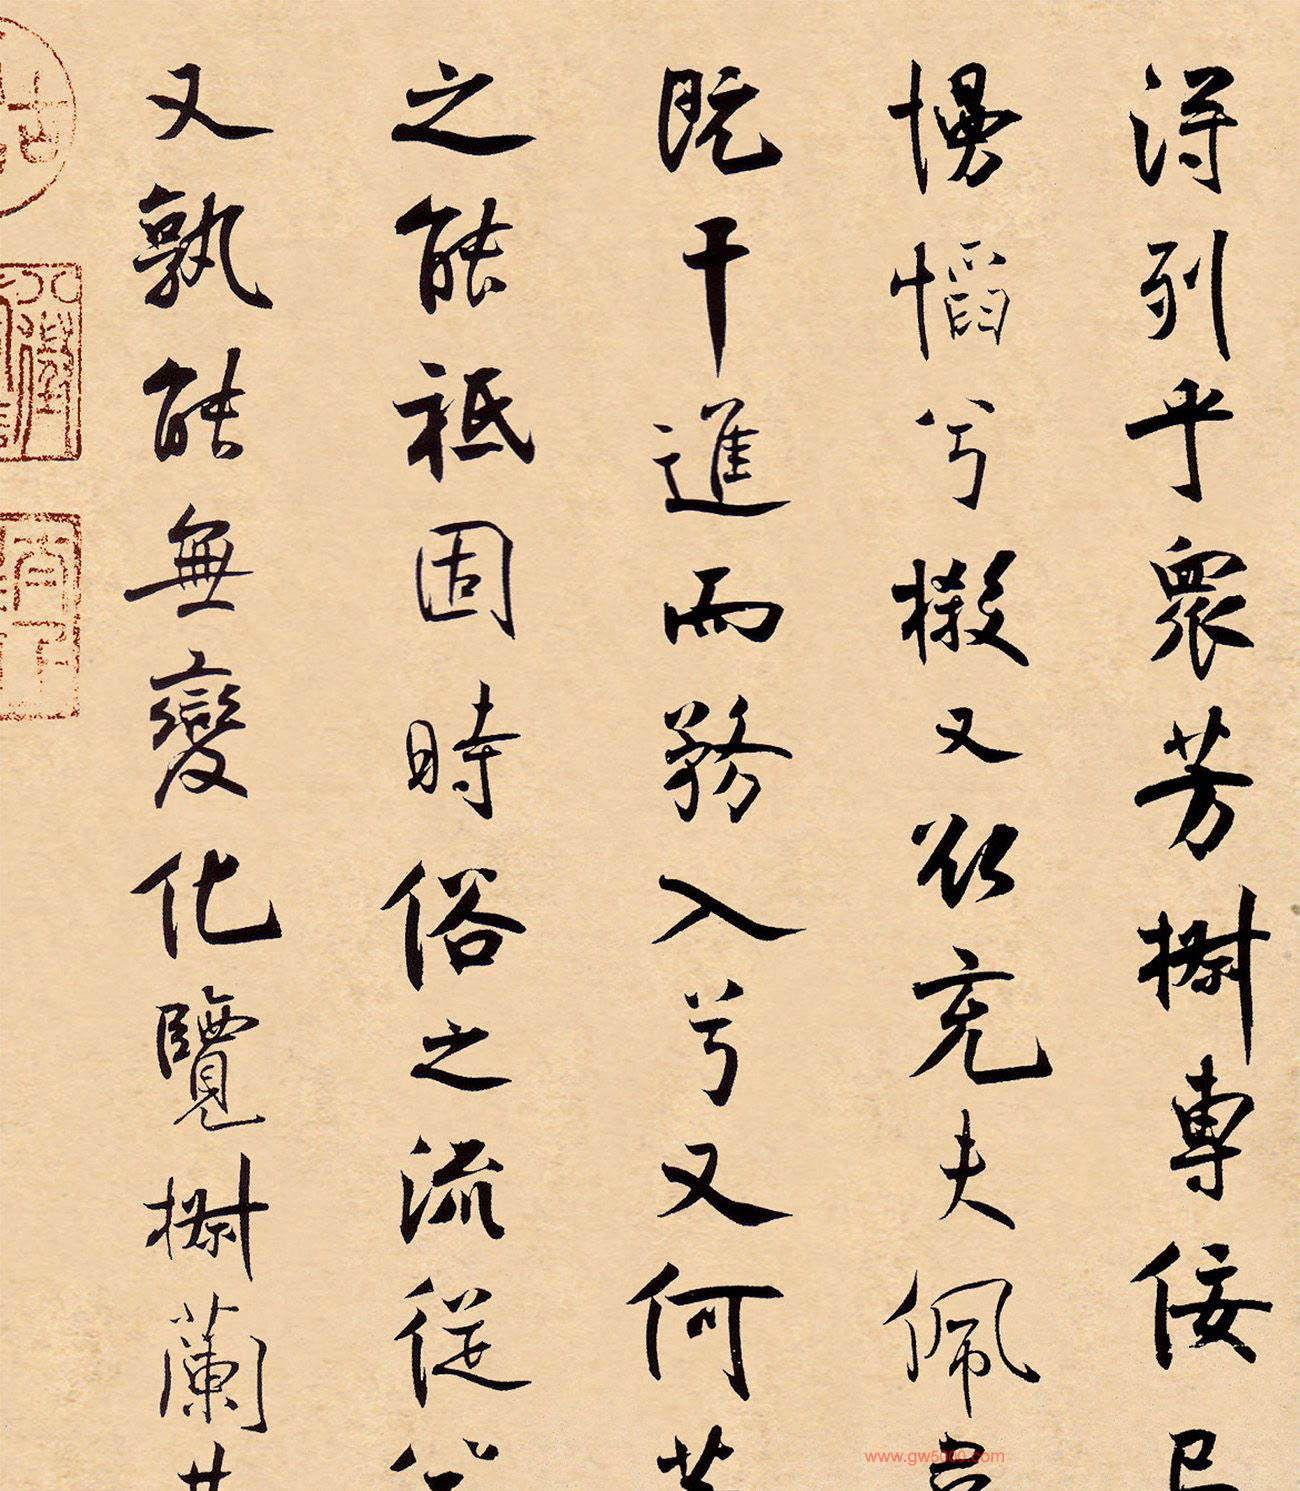 得列乎衆芳椒專佞
慢慆兮樧又欲充夫佩
既干進而務入兮又何
之能祗固時俗之流從
又孰能無變化覽椒蘭
www.gw5000.com